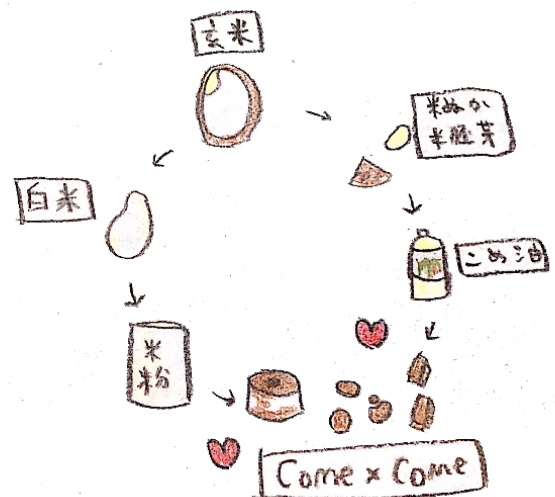 玄米
米ぬか
米胚芽
白米
こめ油
米
粉
Come × Come